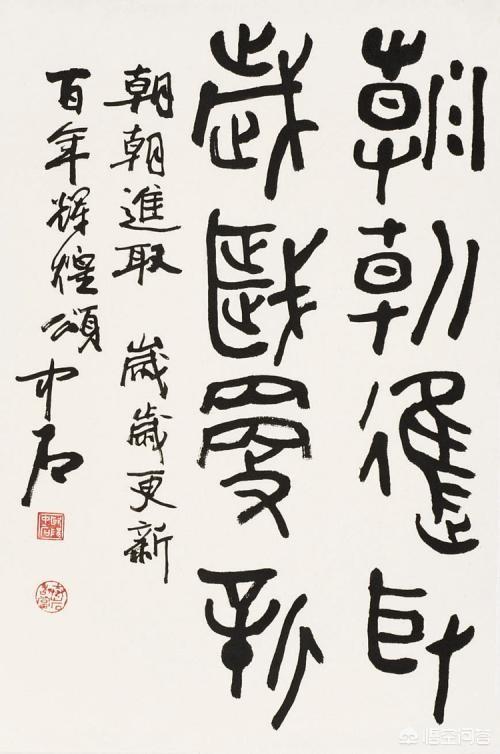 朝朝進取
歲歲更新
朝朝進取 歲歲更新
百年輝煌頌
中石
悟空问答